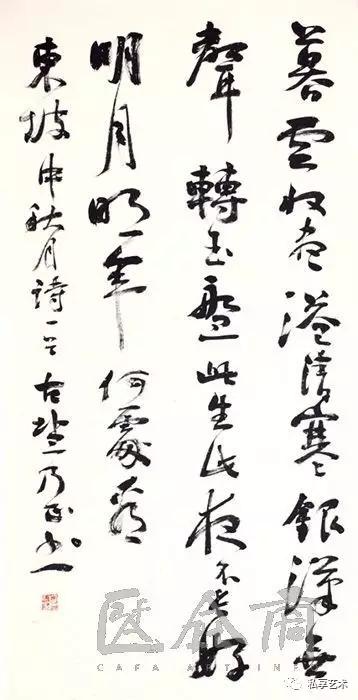 暮雲收盡溢清寒銀漢無
聲轉玉盤此生此夜不長好
明月明年何處看
東坡中秋月詩一首 古塩乃正書
CAFA ART INFO
私享艺术